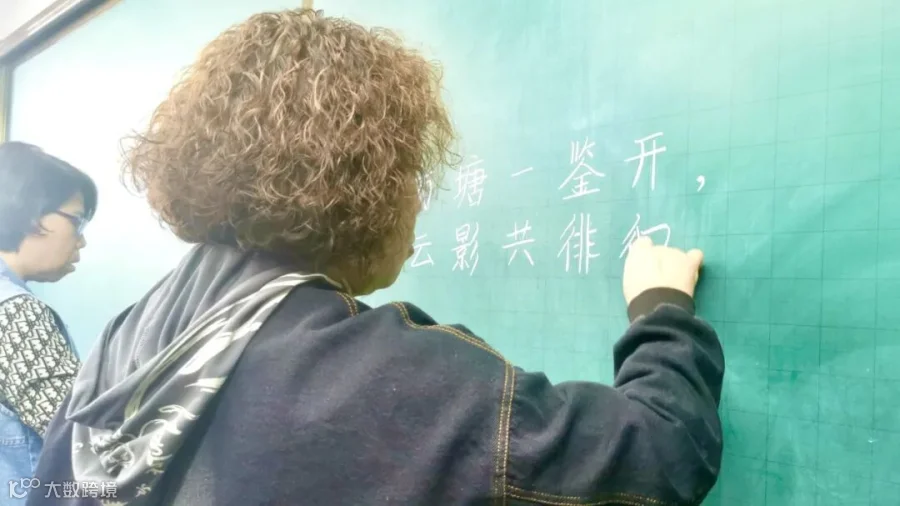 塘一鉴开，
云影共徘
大数跨境